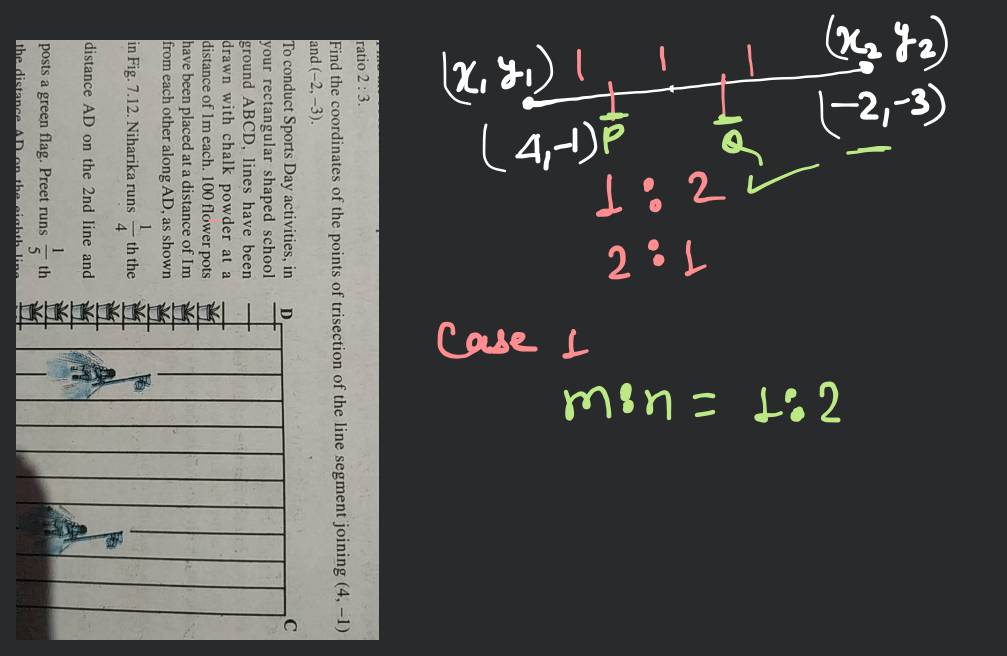 ratio 2 : 3.
Find the coordinates of the points of trisection of the line segment joining (4, –1)
and (–2, –3).
To conduct Sports Day activities, in
your rectangular shaped school
ground ABCD, lines have been
drawn with chalk powder at a
distance of 1m each. 100 flower pots
have been placed at a distance of 1m
from each other along AD, as shown
in Fig. 7.12. Niharika runs 1/4 th the
distance AD on the 2nd line and
posts a green flag. Preet runs 1/5 th
the distance AD on the eighth line
D
C
(x₁ y₁) 1 1 1 (x₂ y₂)
(4,-1) P Q (-2,-3)
1 : 2
2 : 1
Case 1
m:n = 1:2